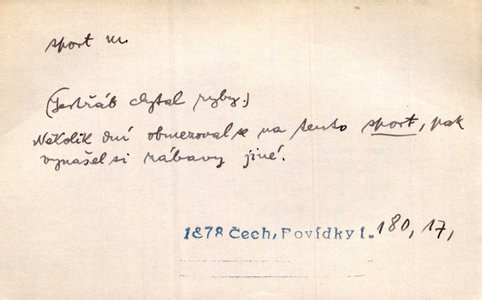 sport m.
(Jestřáb chytal ryby.)
Několik dní obmezoval se na tento sport, pak
vynašel si zábavy jiné.
1878 Čech, Povídky 1. 180, 17,